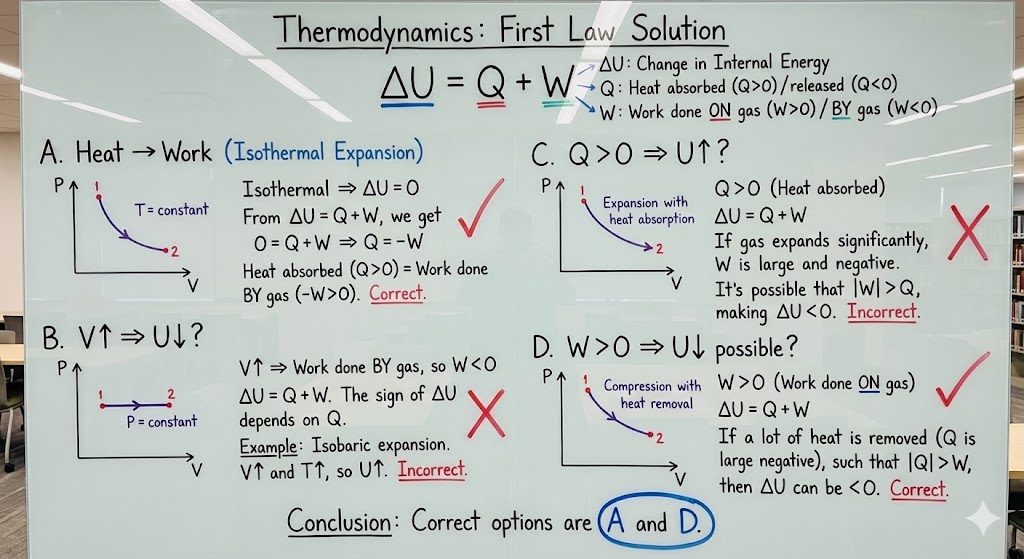 Thermodynamics: First Law Solution
ΔU = Q + W
ΔU: Change in Internal Energy
Q: Heat absorbed (Q>0)/released (Q<0)
W: Work done ON gas (W>0)/BY gas (W<0)
A. Heat → Work (Isothermal Expansion)
P
1
T = constant
2
V
Isothermal ⇒ ΔU = 0
From ΔU = Q + W, we get
0 = Q + W ⇒ Q = -W
Heat absorbed (Q>0) = Work done
BY gas (-W>0). Correct.
B. V↑ ⇒ U↓?
P
1 2
P = constant
V
V↑ ⇒ Work done BY gas, so W<0
ΔU = Q + W. The sign of ΔU
depends on Q.
Example: Isobaric expansion.
V↑ and T↑, so U↑. Incorrect.
C. Q>0 ⇒ U↑?
P
1
Expansion with
heat absorption
2
V
Q>0 (Heat absorbed)
ΔU = Q + W
If gas expands significantly,
W is large and negative.
It's possible that |W| > Q,
making ΔU<0. Incorrect.
D. W>0 ⇒ U↓ possible?
P
1
Compression with
heat removal
2
V
W>0 (Work done ON gas)
ΔU = Q + W
If a lot of heat is removed (Q is
large negative), such that |Q| > W,
then ΔU can be <0. Correct.
Conclusion: Correct options are A and D.